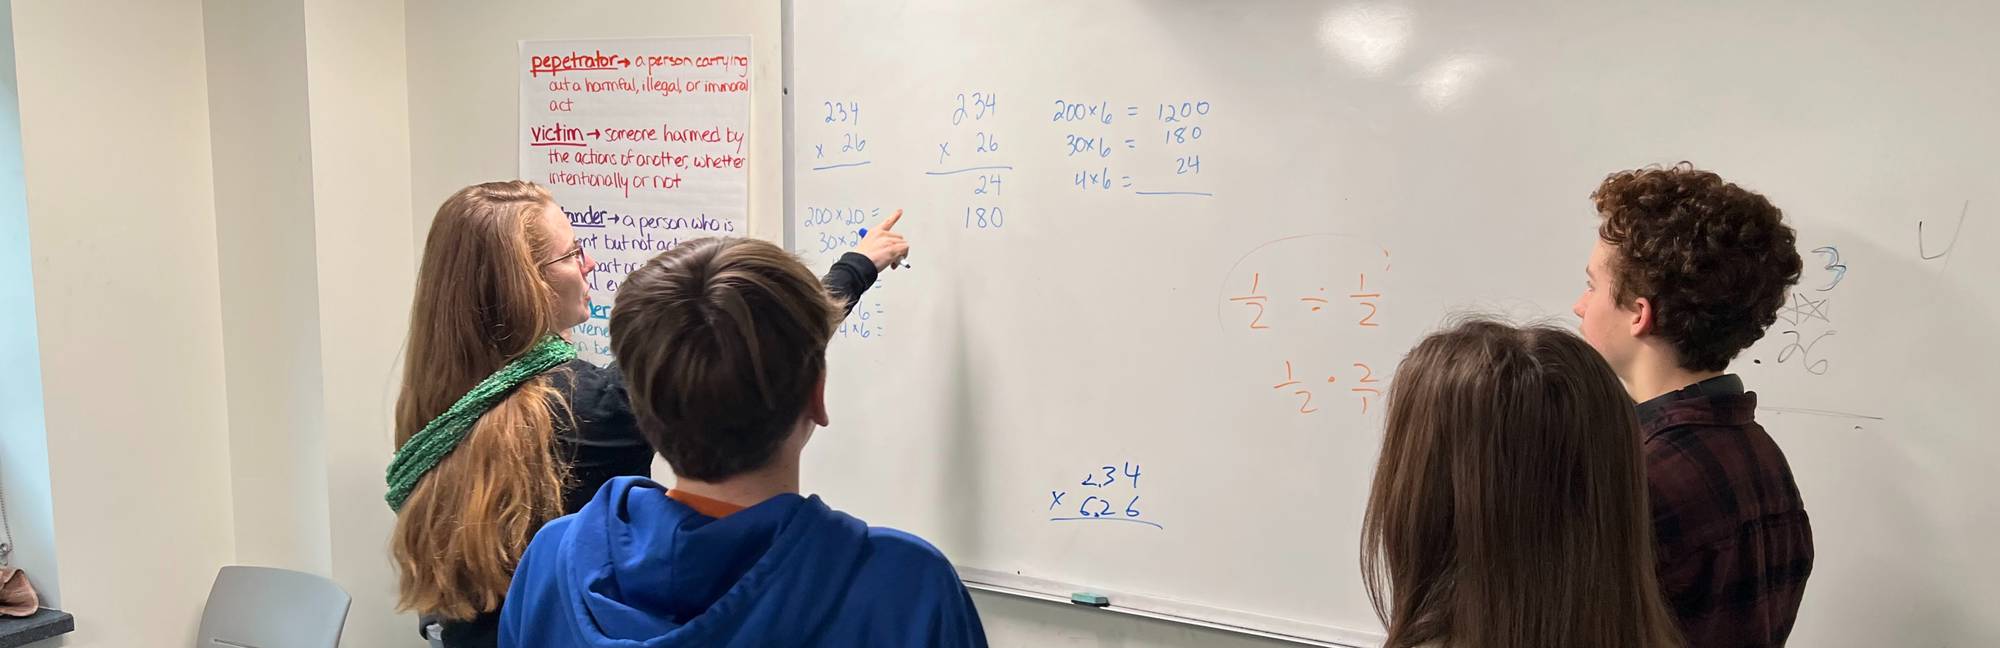 pepetrator → a person carrying
out a harmful, illegal, or immoral
act
victim → someone harmed by
the actions of another, whether
intentionally or not
→ a person who is
but not
part or
234
x 26
200×20 =
30×2
=
6 =
4×6 =
234
x 26
24
180
200×6 = 1200
30×6 = 180
4×6 = 24
1/2 ÷ 1/2
1/2 · 2/1
2.34
x 6.26
3
26